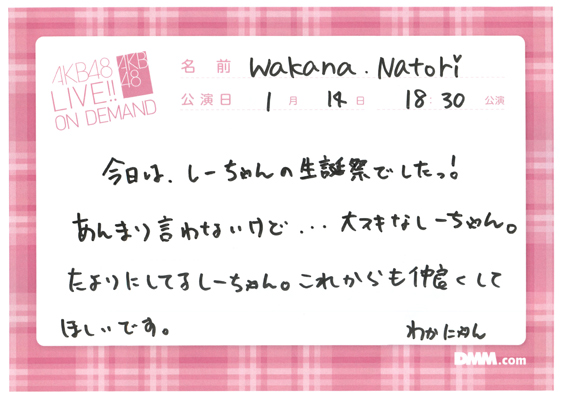 AKB48
LIVE!!
ON DEMAND
AKB
48
名前 Wakana.Natori
公演日 1月 14日 18:30 公演
今日は、しーちゃんの生誕祭でしたっ!
あんまり言わないけど...大スキなしーちゃん。
たよりにしてるしーちゃん。これからも仲良くして
ほしいです。
わかにゃん
DMM.com